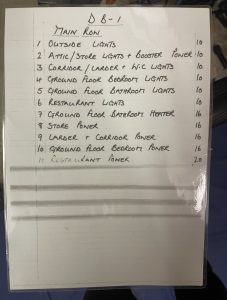 DB-1
MAIN ROW
1 OUTSIDE LIGHTS 10
2 ATTIC/STORE LIGHTS + BOOSTER POWER 10
3 CORRIDOR/LARDER + WC LIGHTS 10
4 GROUND FLOOR BEDROOM LIGHTS 10
5 GROUND FLOOR BATHROOM LIGHTS 10
6 RESTAURANT LIGHTS 10
7 GROUND FLOOR BATHROOM HEATER 16
8 STORE POWER 16
9 LARDER + CORRIDOR POWER 16
10 GROUND FLOOR BEDROOM POWER 16
11 RESTAURANT POWER 20